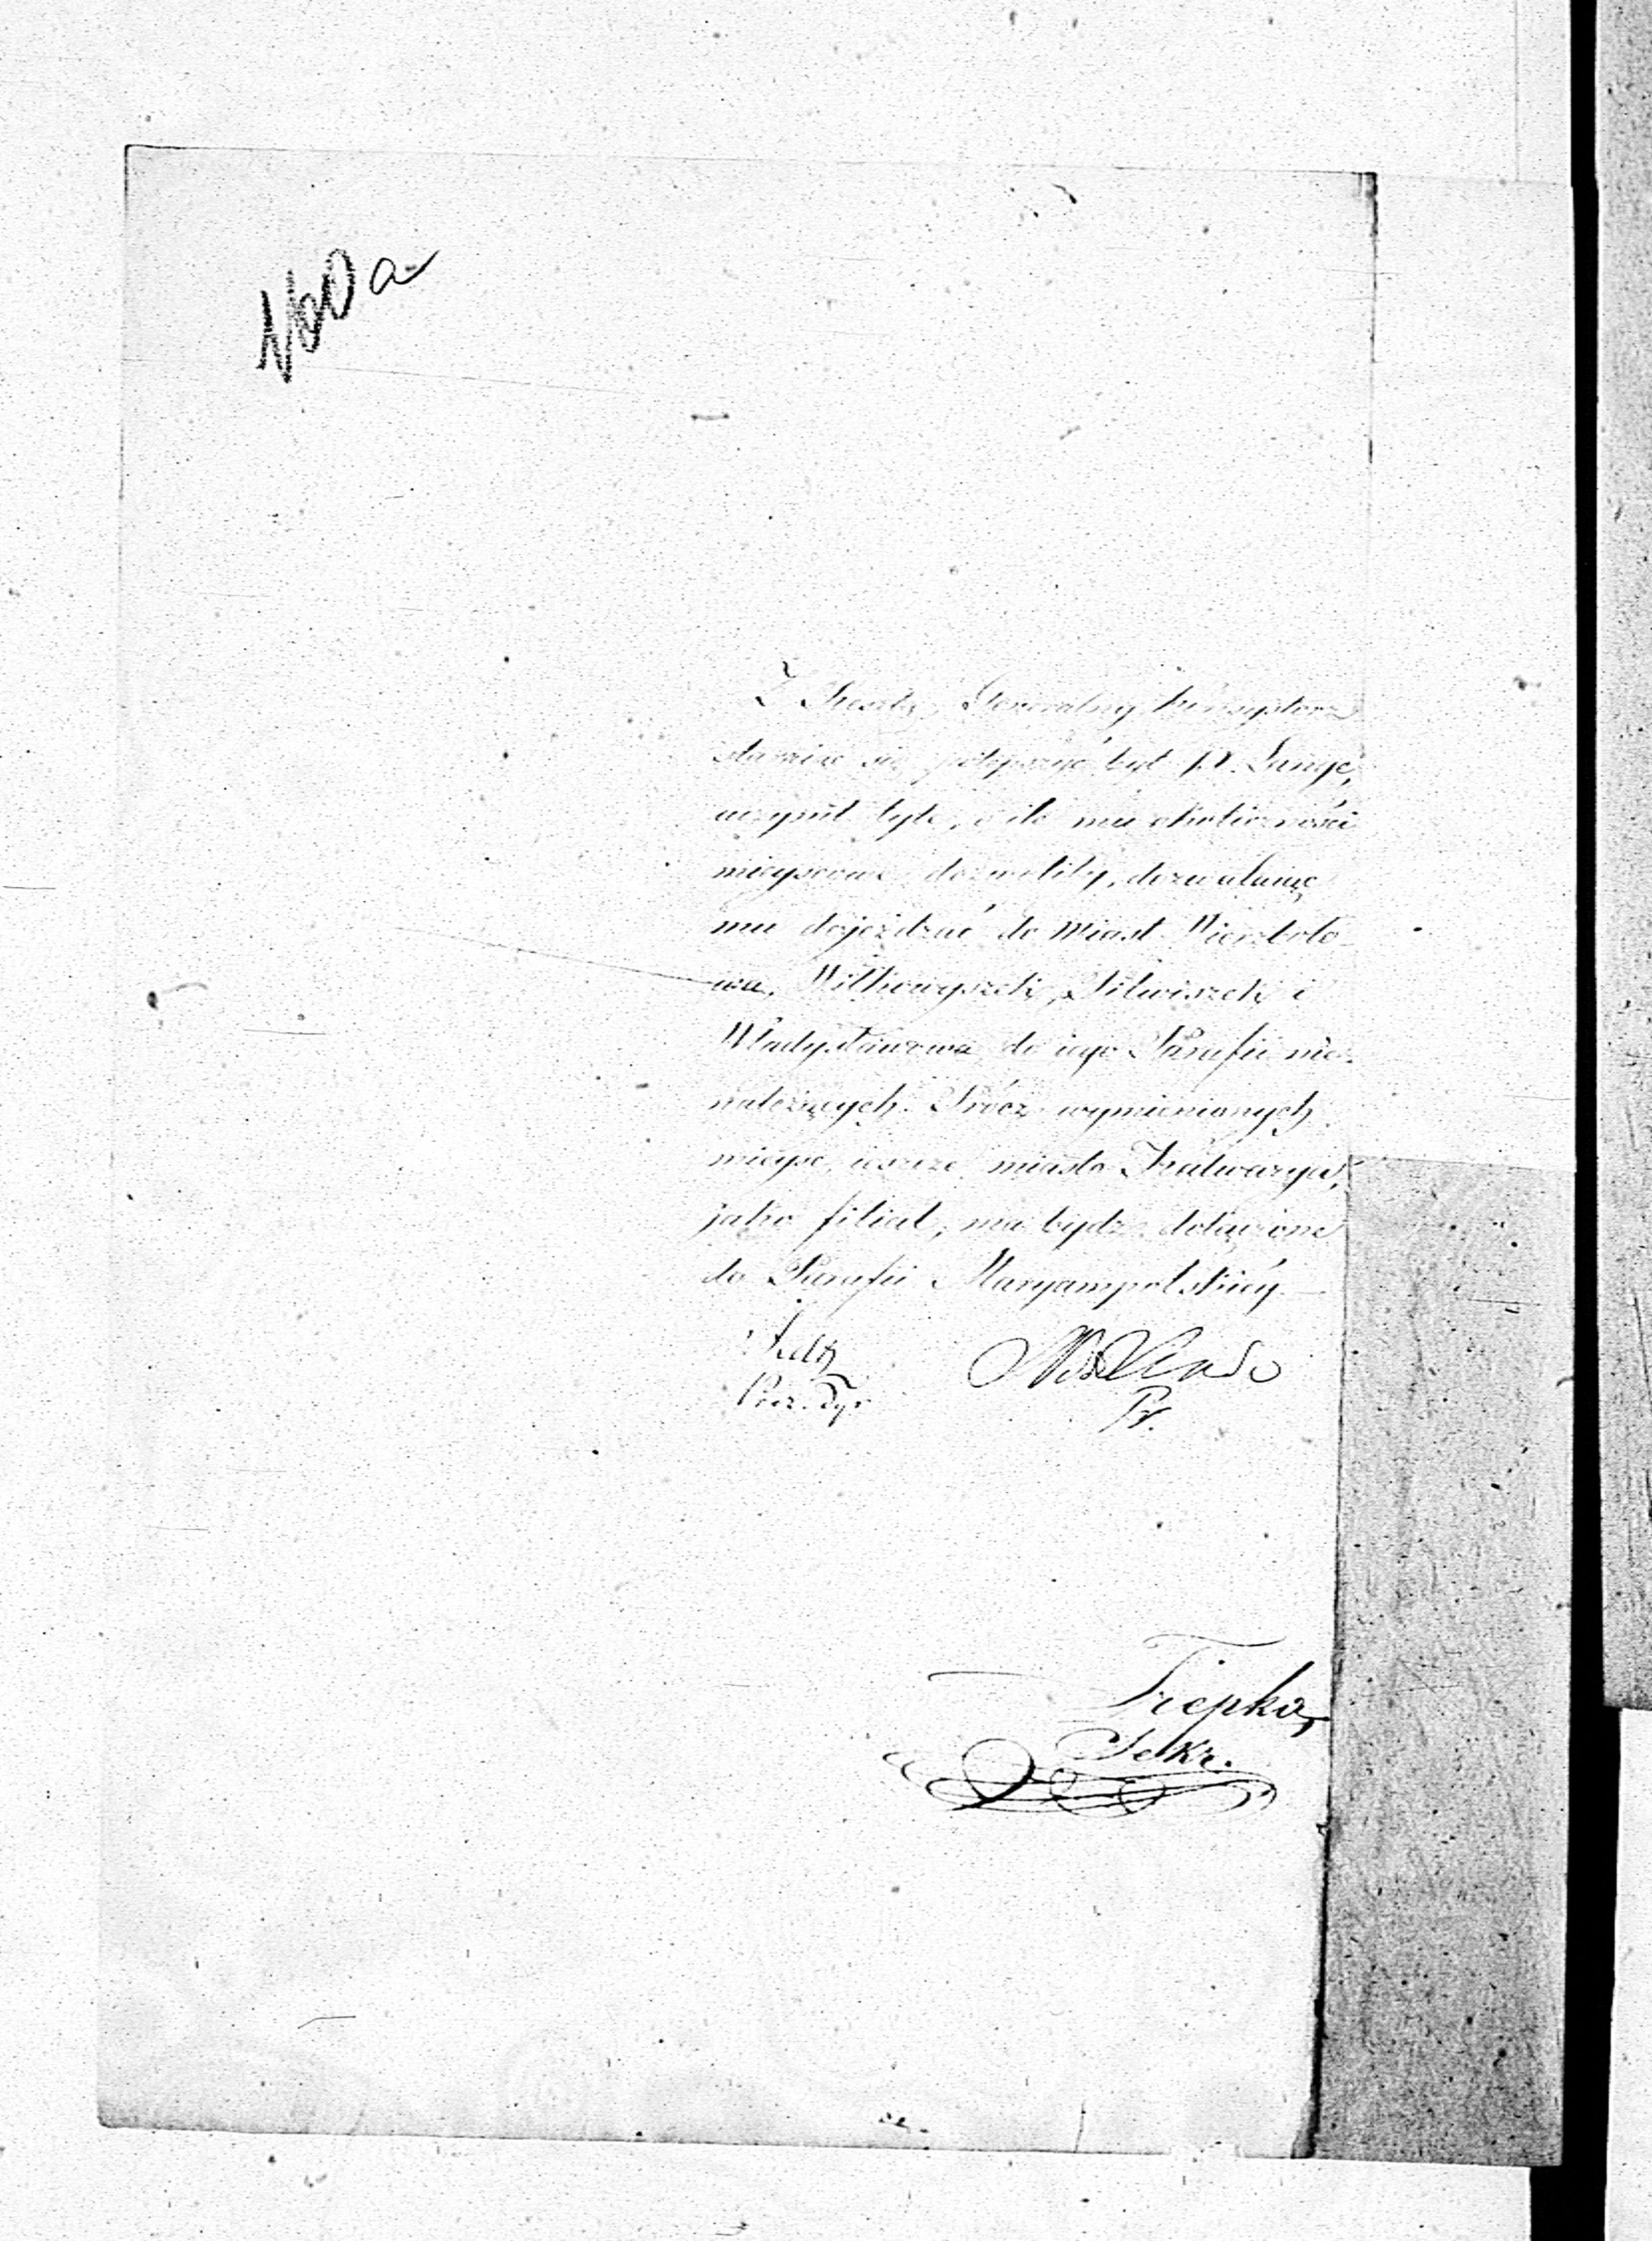 a
Z Resztą, Generalny Konsystorz
starając się polepszyć byt P. Lunge,
uczynił tyle, o ile mu okoliczności
mieyscowe dozwoliły, dozwalaiąc
mu dojeżdzać do Miast Wierzboło-
wa, Wilkowyszek, Pilwiszek i
Władysławowa do iego Parafii nie-
należących. Prócz wymienionych
mieysc, ieszcze miasto Kalwarya,
jako filiał, ma bydz dołączone
do Parafii Maryampolskiéy.
Prez. Dyr
Pr.
Trepka,
Sekr.